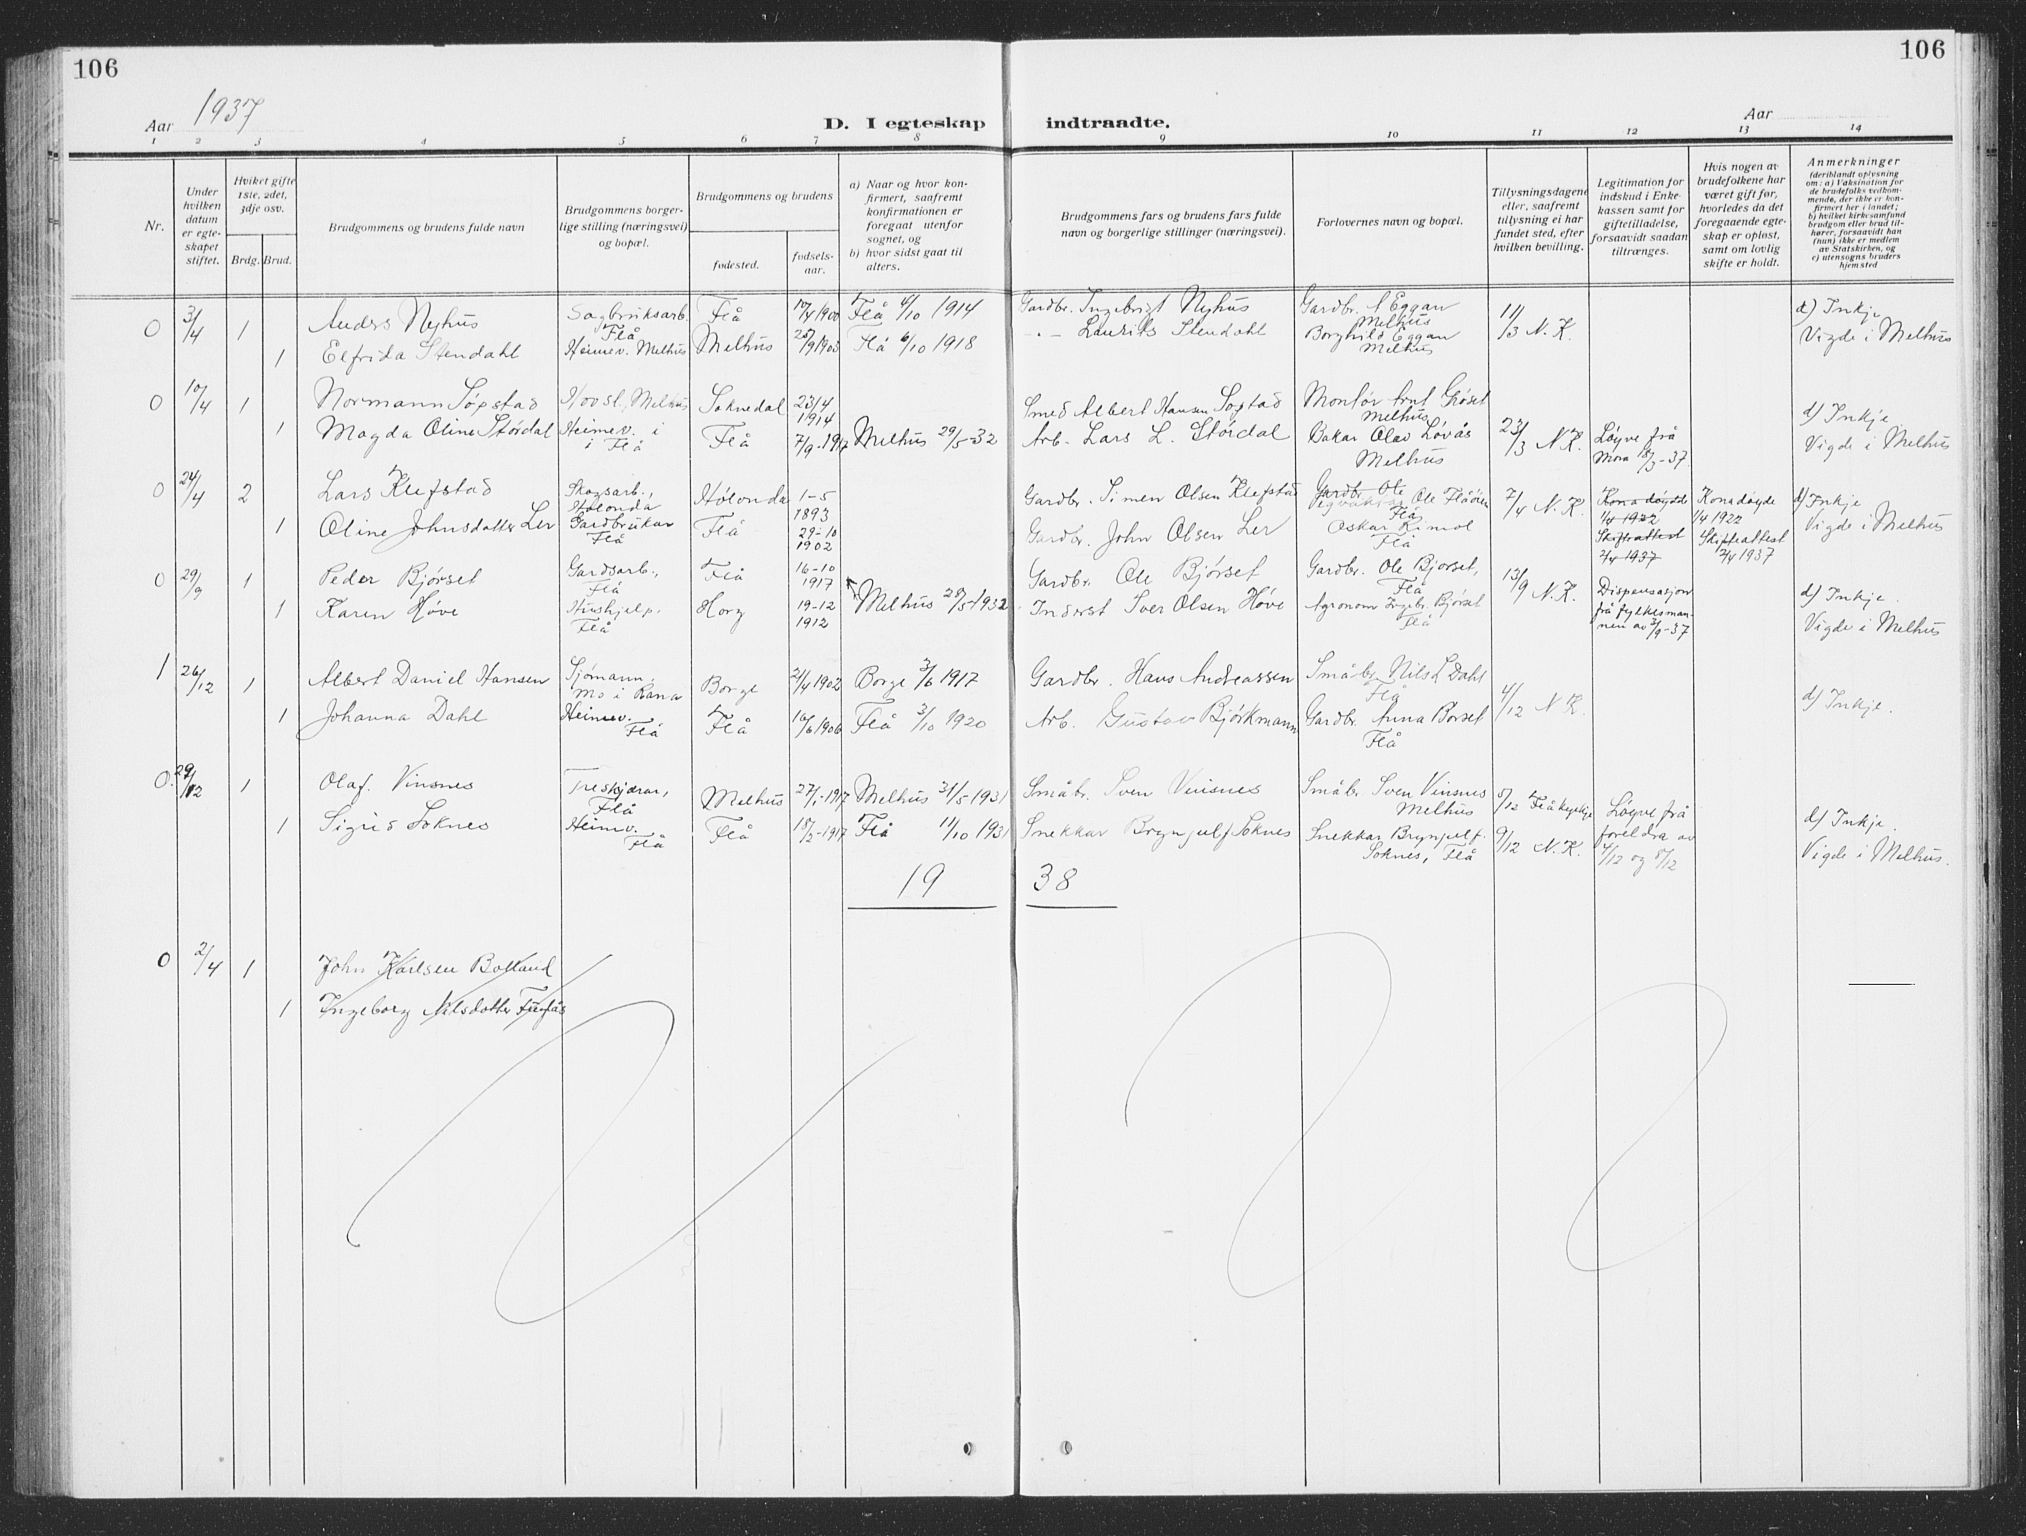 106
106
Aar 1937
D. I egteskap indtraadte.
Aar
1 2 3 4 5 6 7 8 9 10 11 12 13 14
Nr.
Under hvilken datum er egteskapet stiftet.
Hviket gifte 1ste, 2det, 3dje osv.
Brdg. Brud.
Brudgommens og brudens fulde navn
Brudgommens borgerlige stilling (næringsvei) og bopæl.
Brudgommens og brudens
fødested.
fødselsaar.
a) Naar og hvor konfirmert, saafremt konfirmationen er foregaat utenfor sognet, og
b) hvor sidst gaat til alters.
Brudgommens fars og brudens fars fulde navn og borgerlige stillinger (næringsvei).
Forlovernes navn og bopæl.
Tillysningsdagene eller, saafremt tillysning ei har fundet sted, efter hvilken bevilling.
Legitimation for indskud i Enkekassen samt for giftetilladelse, forsaavidt saadan tiltrænges.
Hvis nogen av brudefolkene har været gift før, hvorledes da det foregaaende egteskap er opløst, samt om lovlig skifte er holdt.
Anmerkninger
(deriblandt oplysning om: a) Vaksination for de brudefolks vedkommende, der ikke er konfirmert her i landet; b) hvilket kirkesamfund brudgom eller brud tilhører, forsaavidt han (hun) ikke er medlem av Statskirken, og c) utensogns bruders hjemsted
0 3/4 1 Anders Nyhus Sagbruksarb. Flå Flå 10/4 1900 Flå 4/10 1914 Gardbr. Ingebrigt Nyhus Gardbr. A Eggan Melhus 11/3 N.K. d) Inkje
1 Elfrida Stendahl Heimev. Melhus Melhus 25/9 1903 Flå 6/10 1918 -"- Laurits Stendahl Borghild Eggan Melhus Vigde i Melhus
0 10/4 1 Normann Søpstad Hovst., Melhus Soknedal 23/4 1914 Smed Albert Hansen Soptad Montør Arnt Grøset Melhus d) Inkje
1 Magda Oline Størdal Heimev. i i Flå Flå 7/9-1917 Melhus 29/5-32 Arb. Lars L. Størdal Bakar Olav Løvås Melhus 23/3 N.K. Løyve frå Mora 18/3-37 Vigde i Melhus
0 24/4 2 Lars Klefstad Skogsarb., Hølonda Hølonda 1-5 1893 Gardbr. Simen Olsen Klefstad Gardbr. Ole Ole Flåøien Flå 7/4 N.K. Kona døydde 1/4 1922 Skifteattest 2/4 1937 Kona døyde 1/4 1922 Skifteattest 2/4 1937 d) Inkje
1 Oline Johnsdotter Ler Gardbrukar Flå Flå 29-10 1902 Gardbr. John Olsen Ler Oskar Rimol Flå Vigde i Melhus
0 29/9 1 Peder Bjørset Gardsarb., Flå Flå 16-10 1917 Gardbr. Ole Bjørset Gardbr. Ole Bjørset, Flå 13/9 N.K. Dispensasjon frå fylkesmannen av 3/9-37 d) Inkje.
1 Karen Høve Hushjelp, Flå Horg 19-12 1912 Melhus 28/5-1932 Inderst Iver Olsen Høve Agronom Ingebr. Bjørset Flå Vigde i Melhus
1 26/12 1 Albert Daniel Hansen Sjømann, Mo i Rana Borge 21/4 1902 Borge 3/6 1917 Gardbr. Hans Andreassen Småbr. Nils L Dahl Flå 4/12 N.K. d) Inkje.
1 Johanna Dahl Heimev. Flå Flå 10/6 1906 Flå 3/10 1920 Arb. Gustav Bjørkmann Gardbr. Anna Borset Flå
0. 29/12 1 Olaf. Vinsnes Treskjærar, Flå Melhus 27/1-1917 Melhus 31/5-1931 Småbr. Sven Vinsnes Småbr. Sven Vinsnes Melhus 5/12 Flå kyrkje Løyve frå foreldra av 4/12 og 5/12 d) Inkje.
1 Sigrid Soknes Heimev. Flå Flå 15/2-1917 Flå 11/10 1931 Snekkar Brynjulf Soknes Snekkar Brynjulf Soknes, Flå 9/12 N.K. Vigde i Melhus.
19 38
0 2/4 1 John Karlsen Bolland
1 Ingeborg Nilsdotter